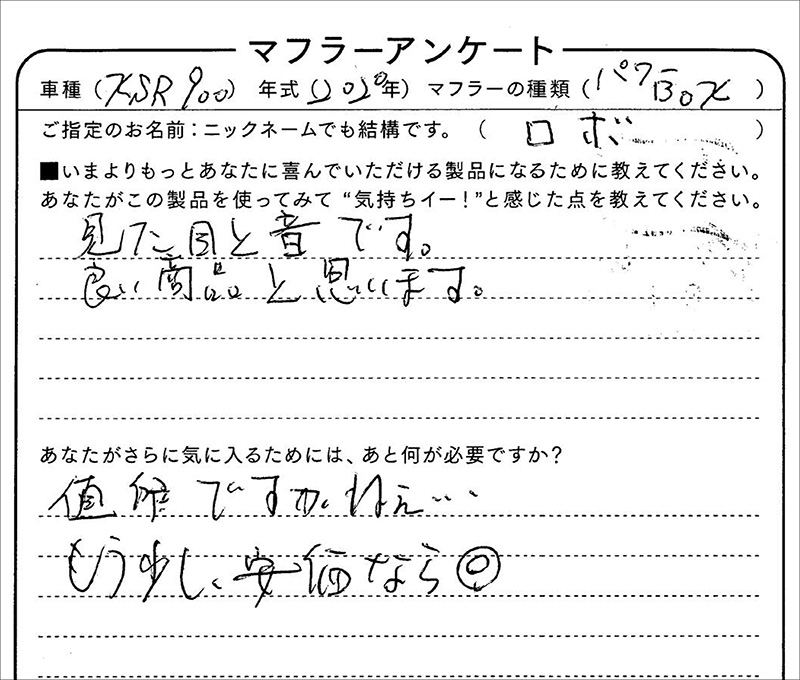 マフラーアンケート
車種（XSR900）年式（2020年）マフラーの種類（パワーBOX）
ご指定のお名前：ニックネームでも結構です。（ロボ）
■いまよりもっとあなたに喜んでいただける製品になるために教えてください。
あなたがこの製品を使ってみて“気持ちイー！”と感じた点を教えてください。
見た目と音です。
良い商品と思います。
あなたがさらに気に入るためには、あと何が必要ですか？
値段ですかねぇ…
もう少し、安価なら◎